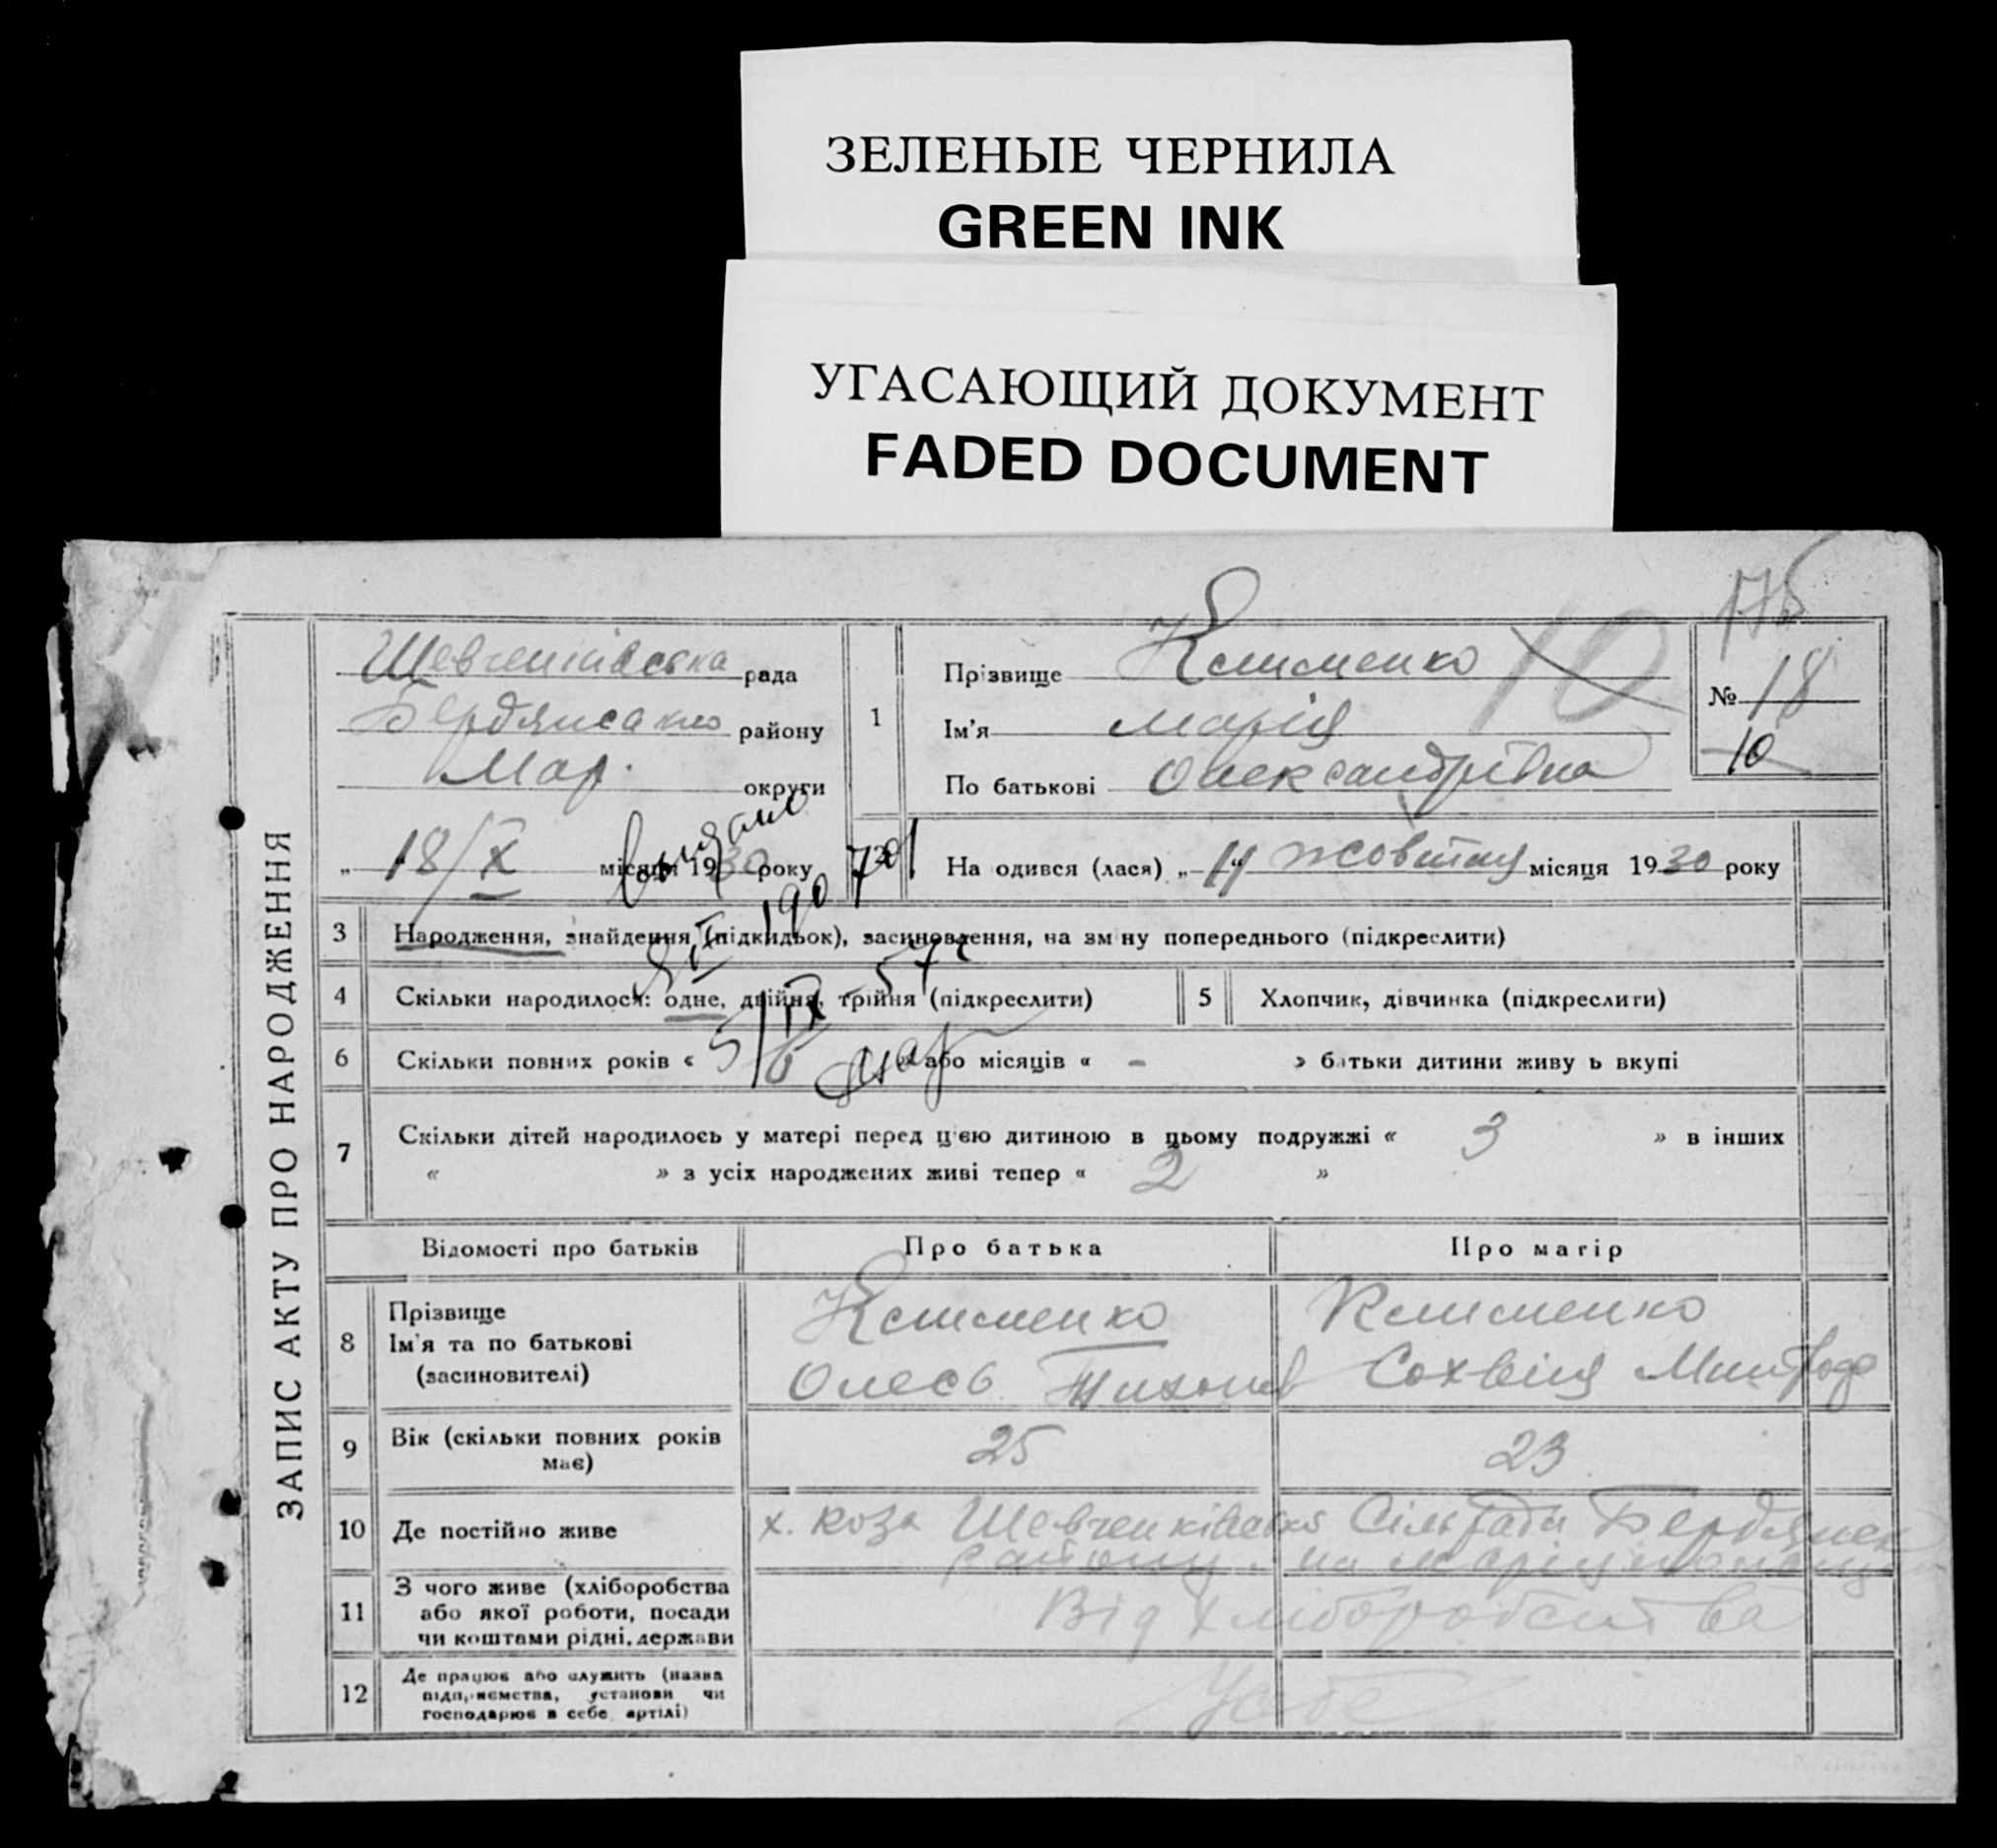 ЗЕЛЕНЫЕ ЧЕРНИЛА
GREEN INK
УГАСАЮЩИЙ ДОКУМЕНТ
FADED DOCUMENT
175
ЗАПИС АКТУ ПРО НАРОДЖЕННЯ
Шевченківська рада
Бердянсакио району
Мар. округи
1
Прізвище Клименко
Ім'я Марія
По батькові Олександрівна
10
№ 18
10
„ 18/X місяця 1930 року
На одився (лася) „14" жовтня місяця 1930 року
3 Народження, знайдення (підкидьок), засиновлення, на зміну попереднього (підкреслити)
4 Скільки народилося: одне, двійня, трійня (підкреслити)
5 Хлопчик, дівчинка (підкреслити)
6 Скільки повних років « 5 » або місяців « - » батьки дитини живу ь вкупі
7 Скільки дітей народилось у матері перед цією дитиною в цьому подружжі « 3 » в інших
« » з усіх народжених живі тепер « 2 »
Відомості про батьків Про батька Про матір
8 Прізвище
Ім'я та по батькові
(засиновителі)
Клименко
Олесь Тихонов
Клименко
Сохвія Митроф
9 Вік (скільки повних років має) 25 23
10 Де постійно живе
х. Роза Шевченківська Сільради Бердянск
району на Маріупольщ
11 З чого живе (хліборобства
або якої роботи, посади
чи коштами рідні, держави
Від хліборобства
12 Де працює або служить (назва
підприємства, установи чи
господарює в себе, артілі)
У себе